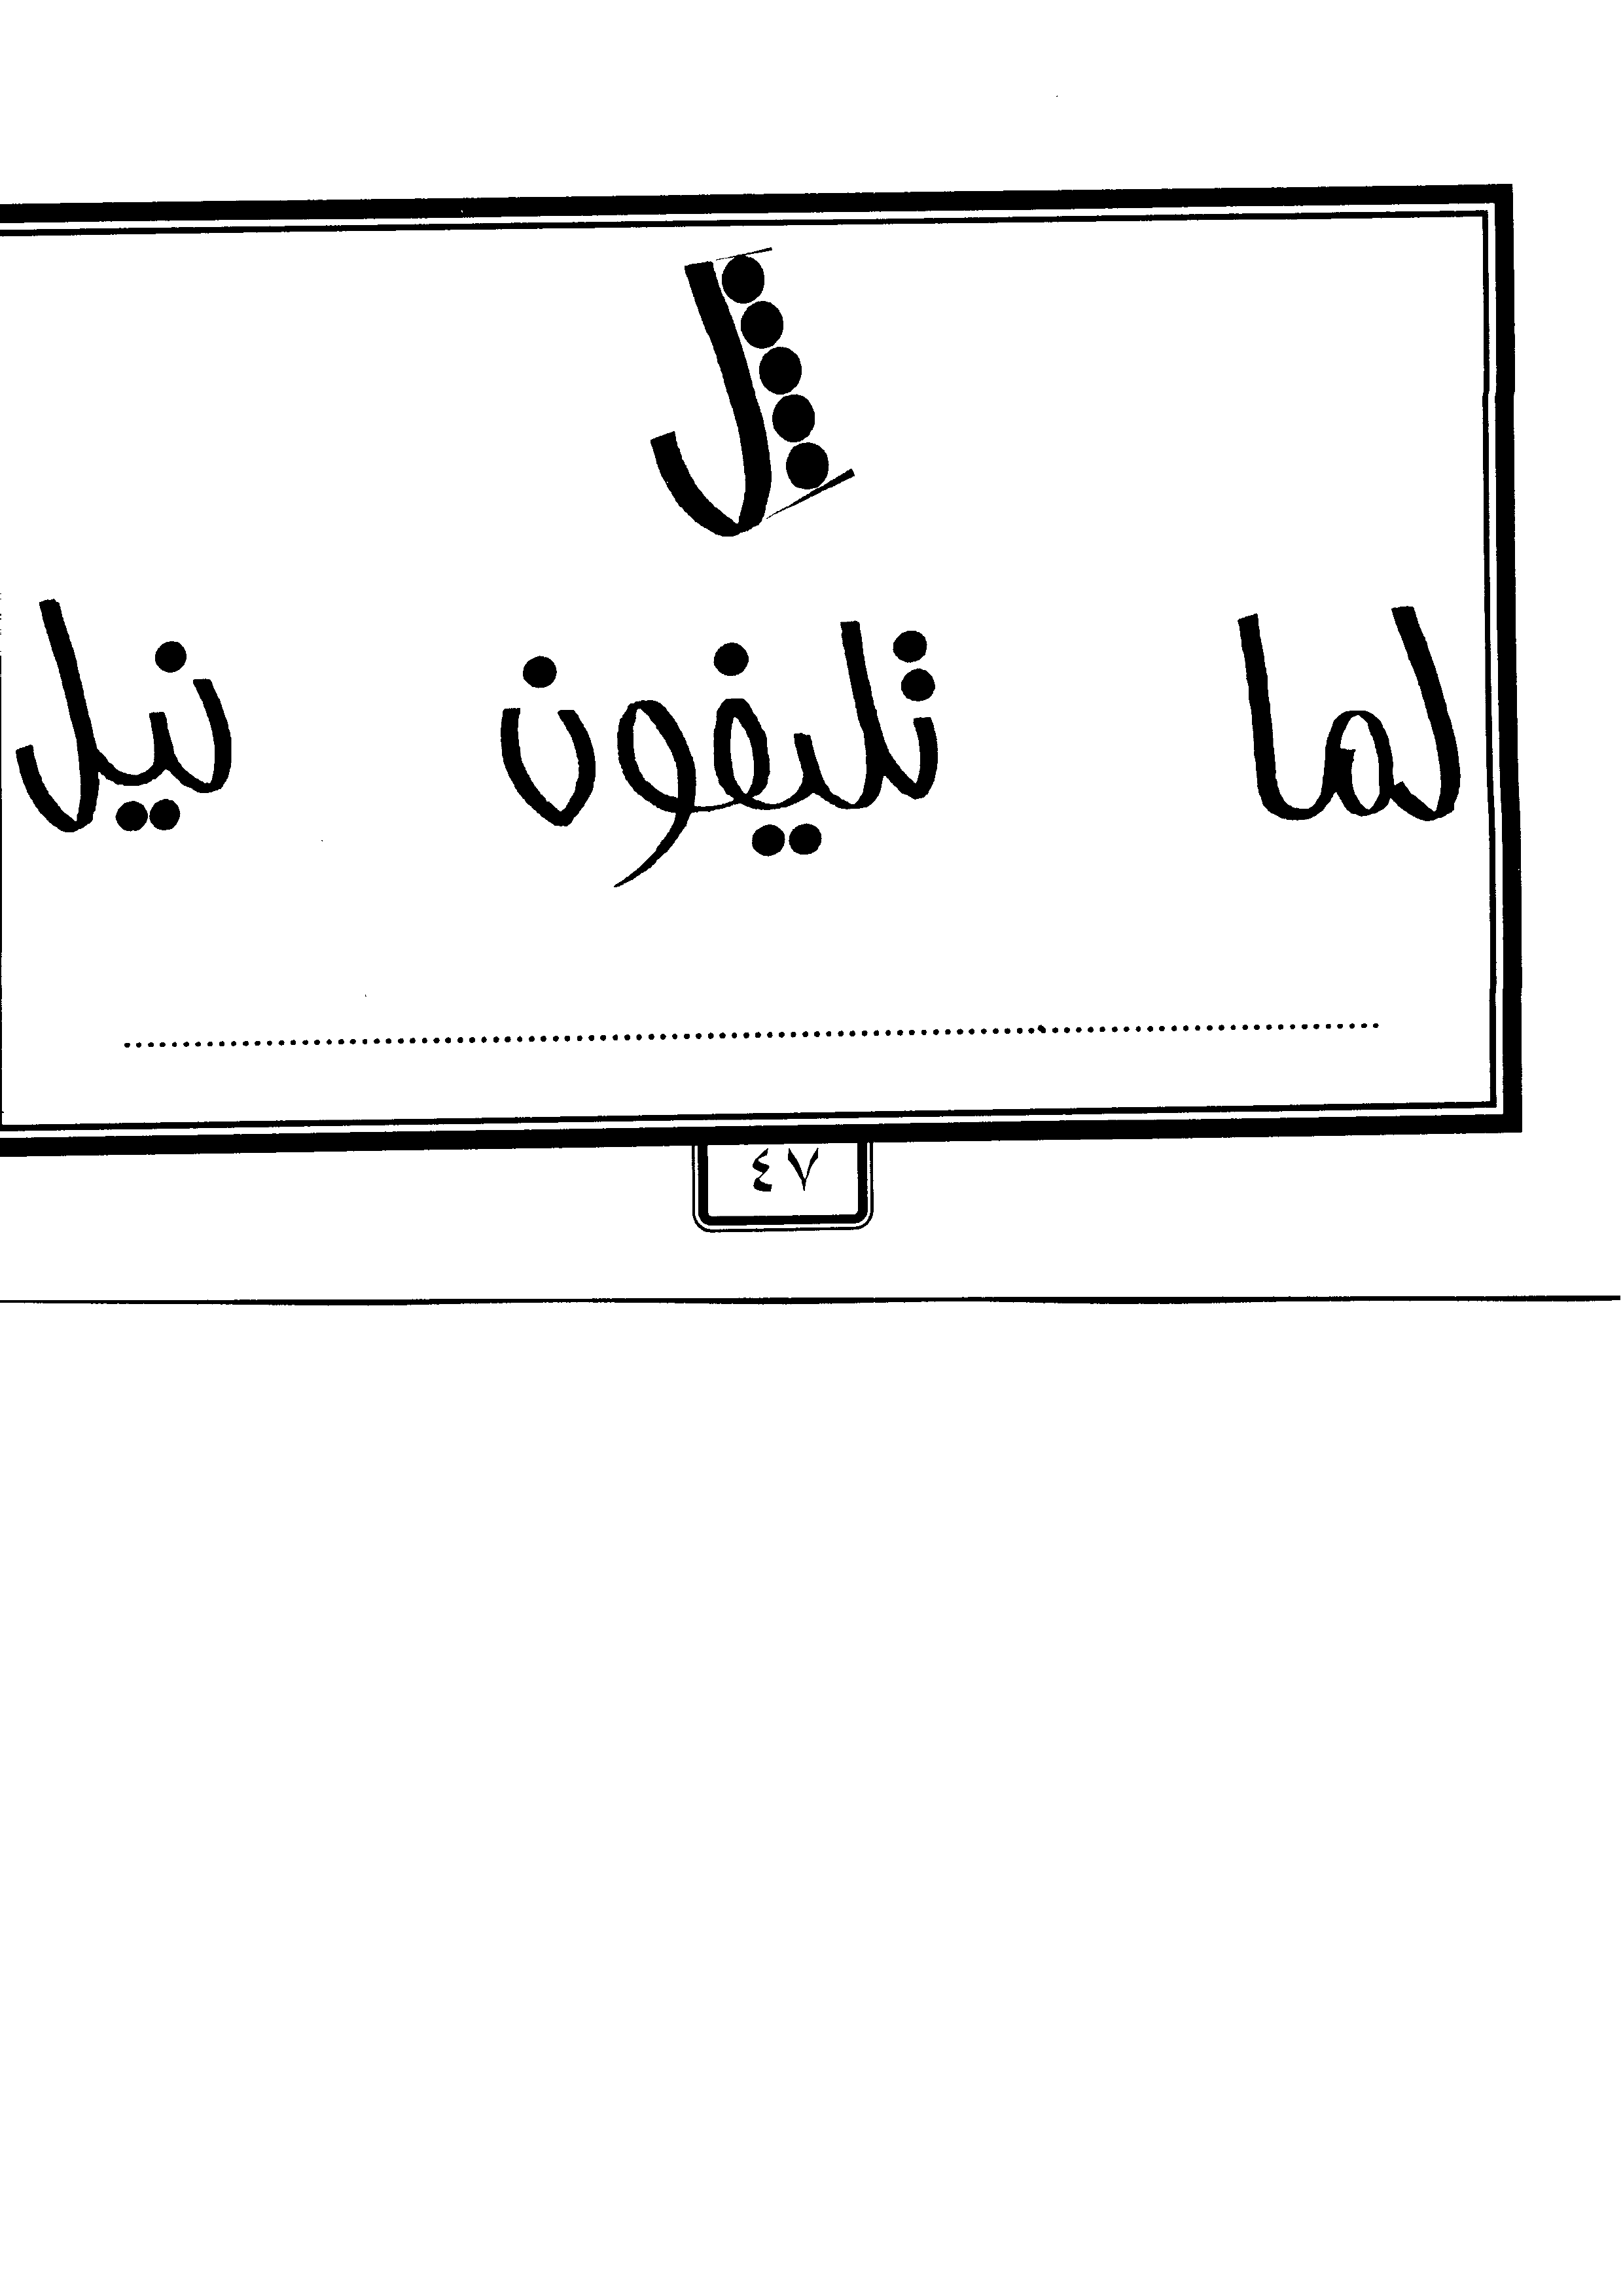 ل
لما تليفون نيل
٤٧